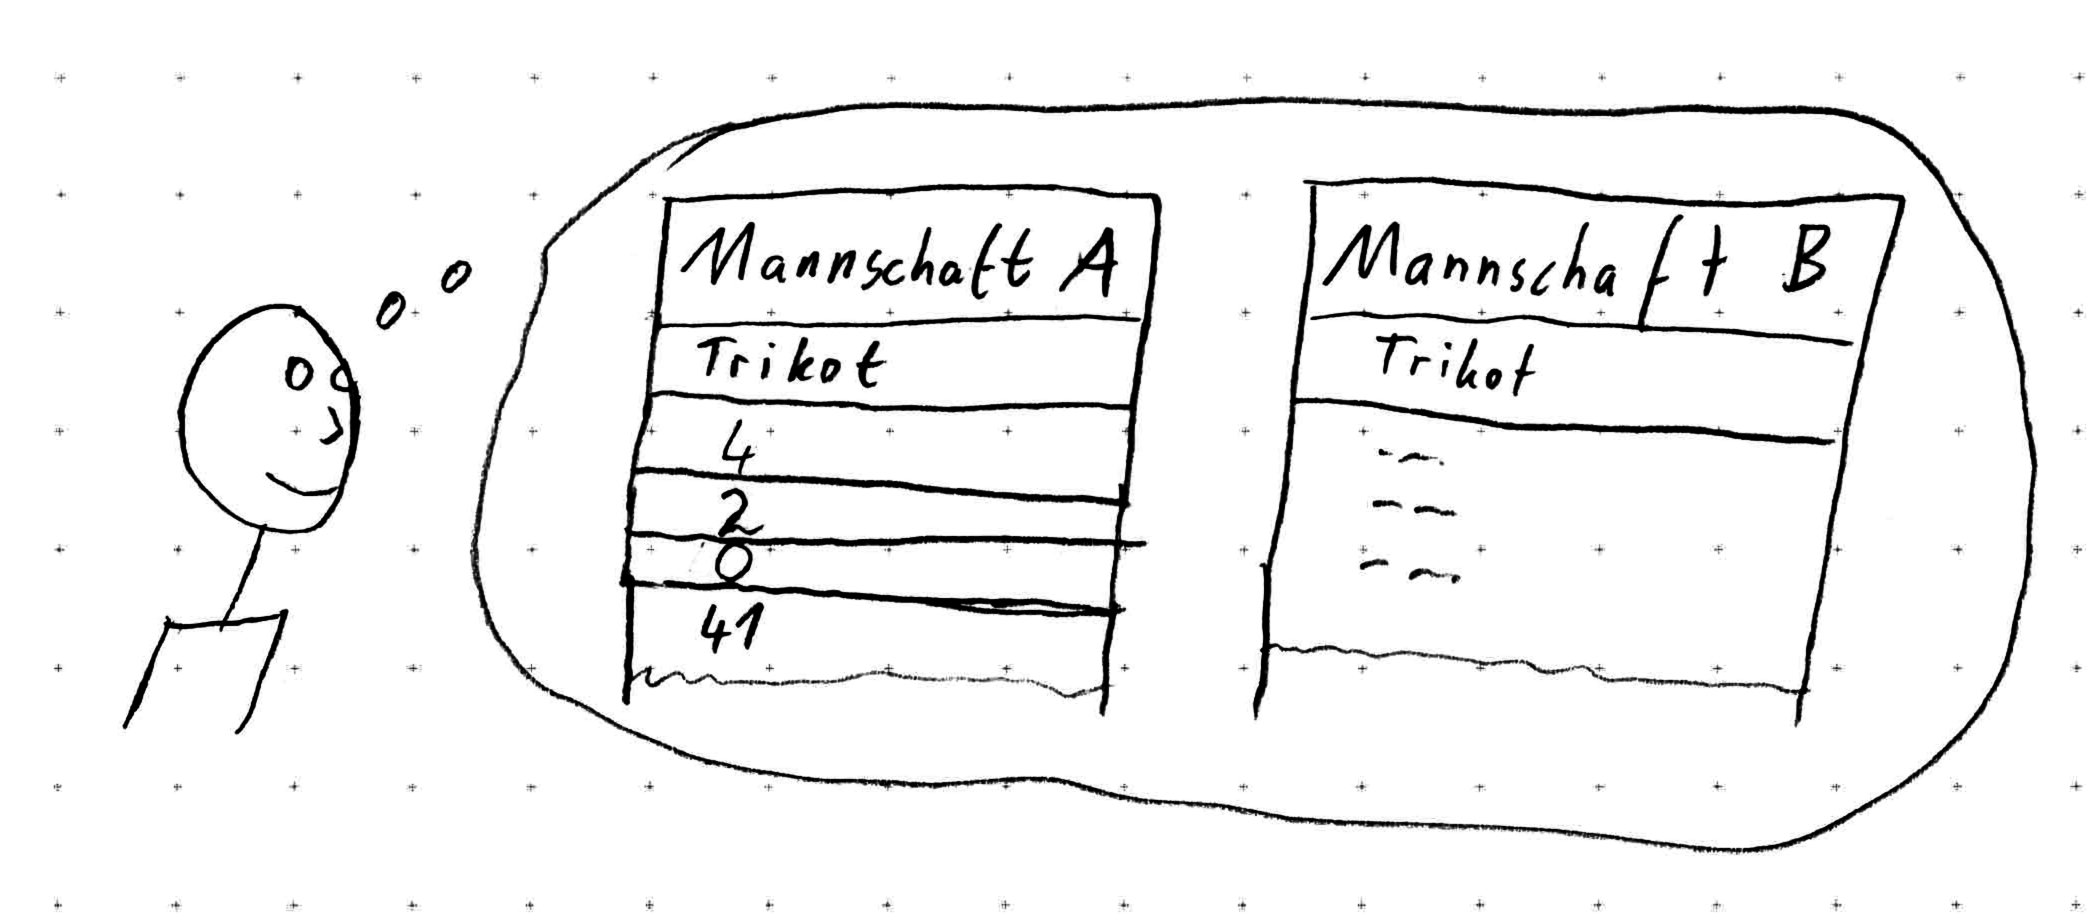 Mannschaft A
Trikot
4
2
0
41
Mannschaft B
Trikot